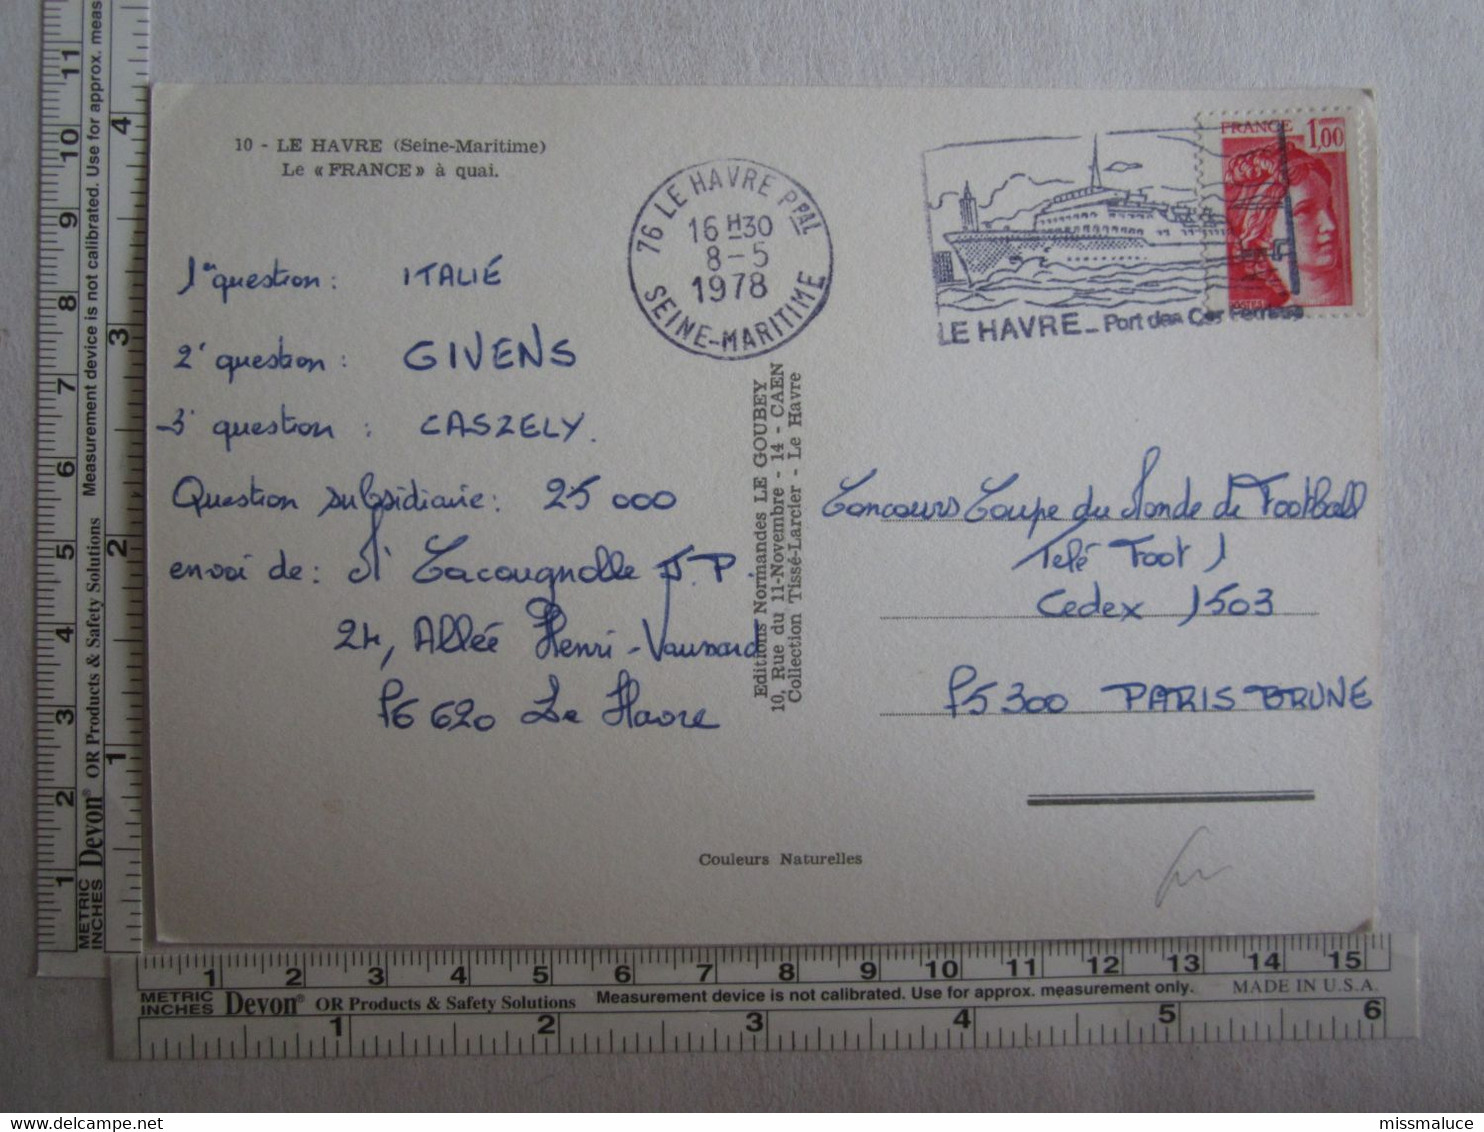 10 - LE HAVRE (Seine-Maritime)
Le « FRANCE » à quai.
76 LE HAVRE PPAL
16 H30
8-5
1978
SEINE-MARITIME
FRANCE 1,00
LE HAVRE - Port des Car Ferries
1er question : ITALIÉ
2' question : GIVENS
3' question : CASZELY.
Question subsidiaire : 25 000
envoi de : Mr Lacougnolle J.P.
24, Allée Henri-Vaussard
76 620 Le Havre
Editions Normandes LE GOUBEY
10, Rue du 11-Novembre - 14 - CAEN
Collection Tissé-Larcier - Le Havre
Concours Coupe du Monde de Football
Telé Foot 1
Cedex 1503
75 300 PARIS BRUNE
Couleurs Naturelles
METRIC
INCHES Devon® OR Products & Safety Solutions Measurement device is not calibrated. Use for approx. meas
1 2 3 4 5 6 7 8 9 10 11
1 2 3 4
1 2 3 4 5 6 7 8 9 10 11 12 13 14 15
METRIC
INCHES Devon® OR Products & Safety Solutions Measurement device is not calibrated. Use for approx. measurement only. MADE IN U.S.A.
1 2 3 4 5 6
missmaluce